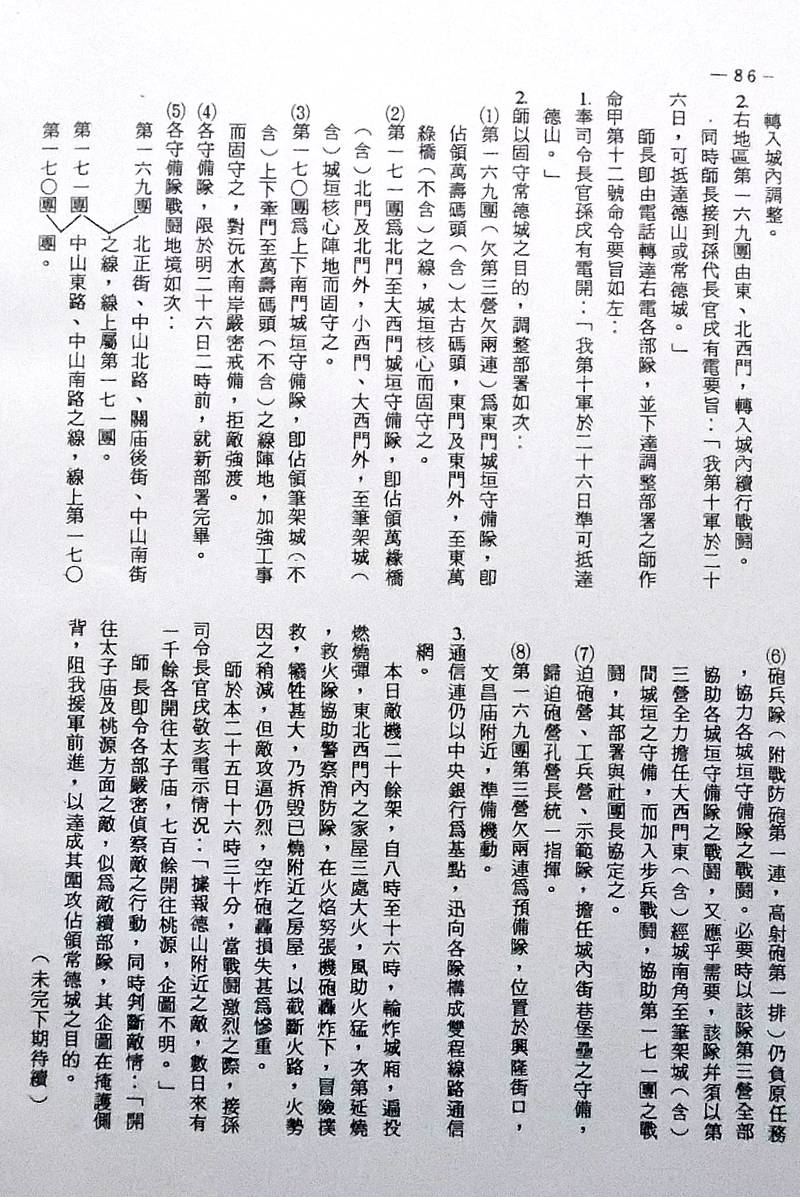 —86—
轉入城內調整。
2.右地區第一六九團由東、北西門，轉入城內續行戰鬪。
同時師長接到孫代長官戌有電要旨：「我第十軍於二十
六日，可抵達德山或常德城。」
師長卽由電話轉達右電各部隊，並下達調整部署之師作
命甲第十二號命令要旨如左：
1.奉司令長官孫戌有電開：「我第十軍於二十六日準可抵達
德山。」
2.師以固守常德城之目的，調整部署如次：
⑴第一六九團（欠第三營欠兩連）爲東門城垣守備隊，卽
佔領萬壽碼頭（含）太古碼頭，東門及東門外，至東萬
綠橋（不含）之線，城垣核心而固守之。
⑵第一七一團爲北門至大西門城垣守備隊，卽佔領萬緣橋
（含）北門及北門外，小西門、大西門外，至筆架城（
含）城垣核心陣地而固守之。
⑶第一七〇團爲上下南門城垣守備隊，卽佔領筆架城（不
含）上下牽門至萬壽碼頭（不含）之線陣地，加強工事
而固守之，對沅水南岸嚴密戒備，拒敵強渡。
⑷各守備隊，限於明二十六日二時前，就新部署完畢。
⑸各守備隊戰鬪地境如次：
第一六九團 北正街、中山北路、關庙後街、中山南街
之線，線上屬第一七一團。
第一七一團 中山東路、中山南路之線，線上第一七〇
第一七〇團 團。
⑹砲兵隊（附戰防砲第一連，高射砲第一排）仍負原任務
，協力各城垣守備隊之戰鬪。必要時以該隊第三營全部
協助各城垣守備隊之戰鬪，又應乎需要，該隊幷須以第
三營全力擔任大西門東（含）經城南角至筆架城（含）
間城垣之守備，而加入步兵戰鬪，協助第一七一團之戰
鬪，其部署與社團長協定之。
⑺迫砲營、工兵營、示範隊，擔任城內街巷堡壘之守備，
歸迫砲營孔營長統一指揮。
⑻第一六九團第三營欠兩連爲預備隊，位置於興隆街口，
文昌庙附近，準備機動。
3.通信連仍以中央銀行爲基點，迅向各隊構成雙程線路通信
網。
本日敵機二十餘架，自八時至十六時，輪炸城廂，遍投
燃燒彈，東北西門內之家屋三處大火，風助火猛，次第延燒
，救火隊協助警察消防隊，在火焰努張機砲轟炸下，冒險撲
救，犧牲甚大，乃拆毀已燒附近之房屋，以截斷火路，火勢
因之稍減，但敵攻逼仍烈，空炸砲轟損失甚爲慘重。
師於本二十五日十六時三十分，當戰鬪激烈之際，接孫
司令長官戌敬亥電示情況：「據報德山附近之敵，數日來有
一千餘各開往太子庙，七百餘開往桃源，企圖不明。」
師長卽令各部嚴密偵察敵之行動，同時判斷敵情：「開
往太子庙及桃源方面之敵，似爲敵續部隊，其企圖在掩護側
背，阻我援軍前進，以達成其圍攻佔領常德城之目的。
（未完下期待續）